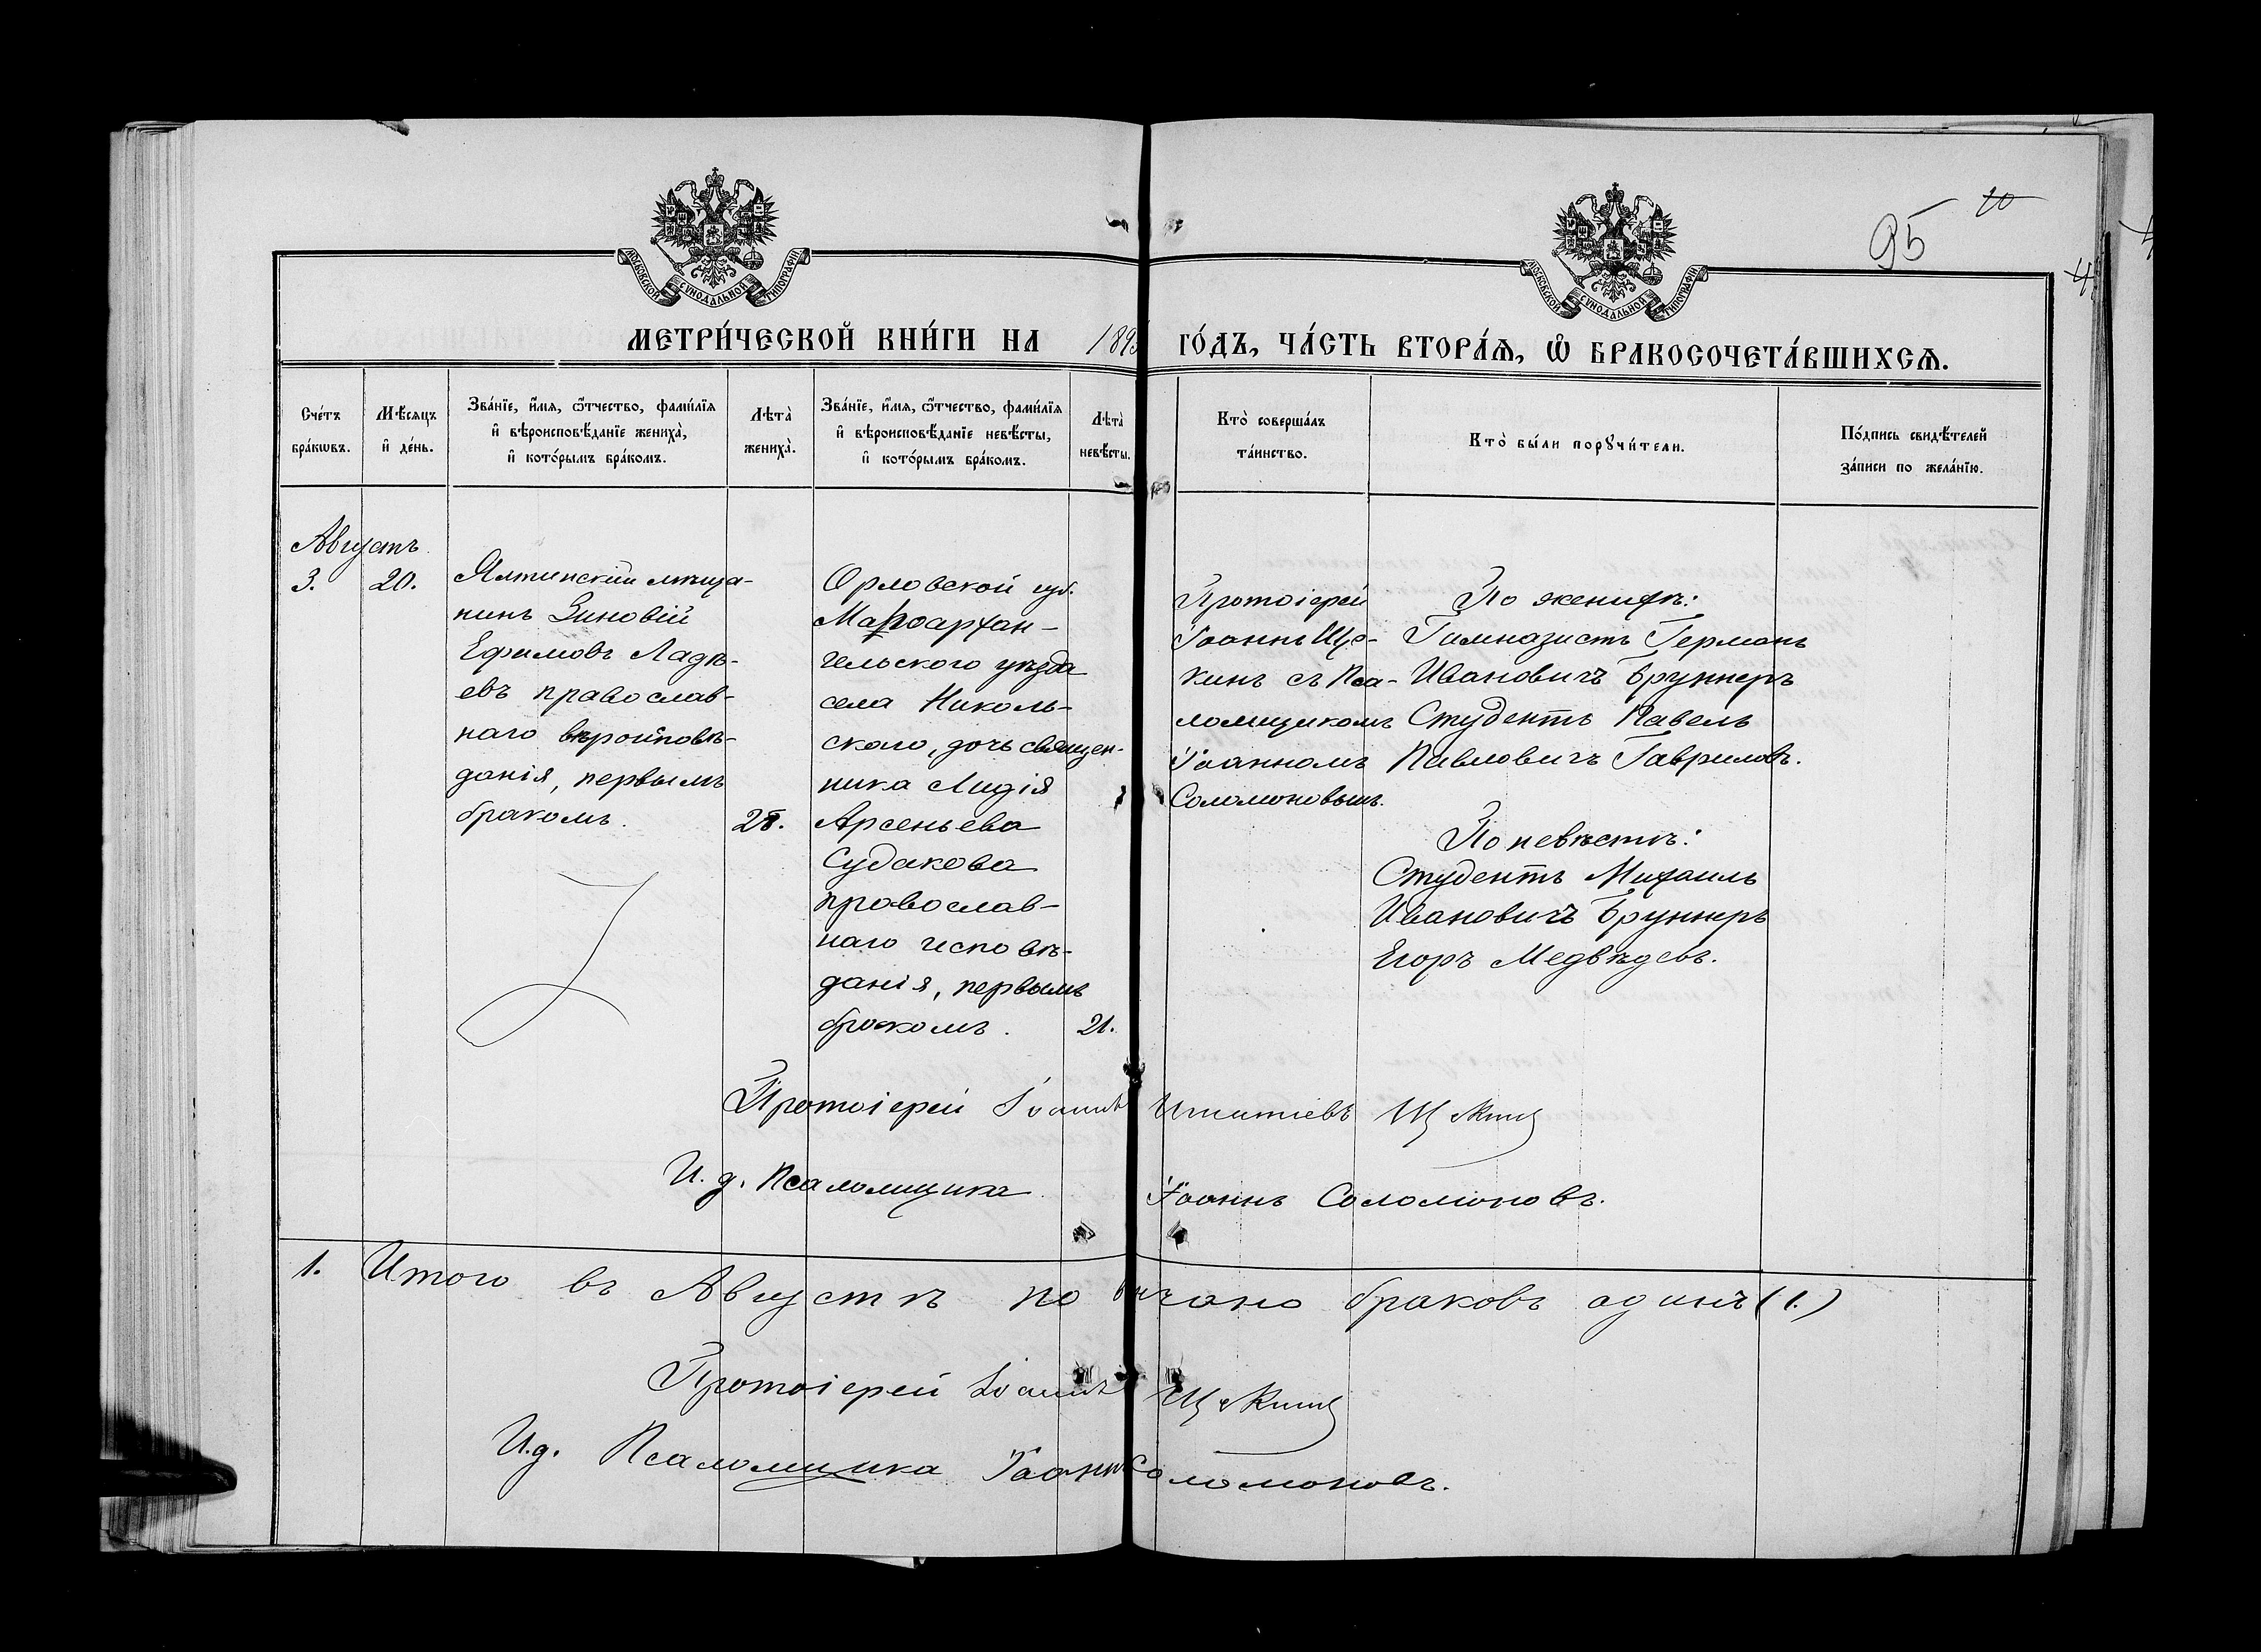 95 10
МОСКОВСКОЙ СѴНОДАЛЬНОЙ ТИПОГРАФІИ
МОСКОВСКОЙ СѴНОДАЛЬНОЙ ТИПОГРАФІИ
МЕТРИ́ЧЕСКОЙ КНИ́ГИ НА 1895 ГО́ДЪ, ЧА́СТЬ ВТОРА́Ѧ, Ѽ БРАКОСОЧЕТА́ВШИХСѦ.
Сче́тъ
бра́кѡвъ.
Мѣ́сяцъ
и҆ де́нь.
Зва́нїе, и҆́мя, ѻ҆́тчество, фами́лїя
и҆ вѣроисповѣ́данїе жениха̀,
и҆ кото́рымъ бра́комъ.
Лѣта̀
жениха̀.
Зва́нїе, и҆́мя, ѻ҆́тчество, фами́лїя
и҆ вѣроисповѣ́данїе невѣ́сты,
и҆ кото́рымъ бра́комъ.
Лѣта̀
невѣ́сты.
Кто̀ соверша́лъ
та́инство.
Кто̀ бы́ли порꙋчи́тели.
По́дпись свидѣ́телей
за́писи по жела́нїю.
Августъ
3.
20.
Ялтинскій мѣща-
нинъ Зиновій
Ефимовъ Ладѣ-
евъ православ-
наго вѣроисповѣ-
данія, первымъ
бракомъ.
Орловской губ.
Малоархан-
гельского уѣзда
села Николь-
скаго, дочь священ-
ника Лидія
Арсеньева
Судакова
православ-
наго исповѣ-
данія, первымъ
бракомъ.
21.
Протоіерей
Іоаннъ Ще-
кинъ съ Пса-
ломщикомъ
Іоанномъ
Соломоновымъ.
По женихѣ:
Гимназистъ Германъ
Ивановичъ Бруннеръ
Студентъ Павелъ
Павловичъ Гавриловъ.
По невѣстѣ:
Студентъ Михаилъ
Ивановичъ Бруннеръ
Егоръ Медвѣдевъ.
Протоіерей Іоаннъ Игнатіевъ Щекинъ
И. д. Псаломщика Іоаннъ Соломоновъ.
1. Итого въ Августѣ повѣнчано браковъ одинъ (1.)
Протоіерей Іоаннъ Щекинъ
И.д. Псаломщика Іоаннъ Соломоновъ.